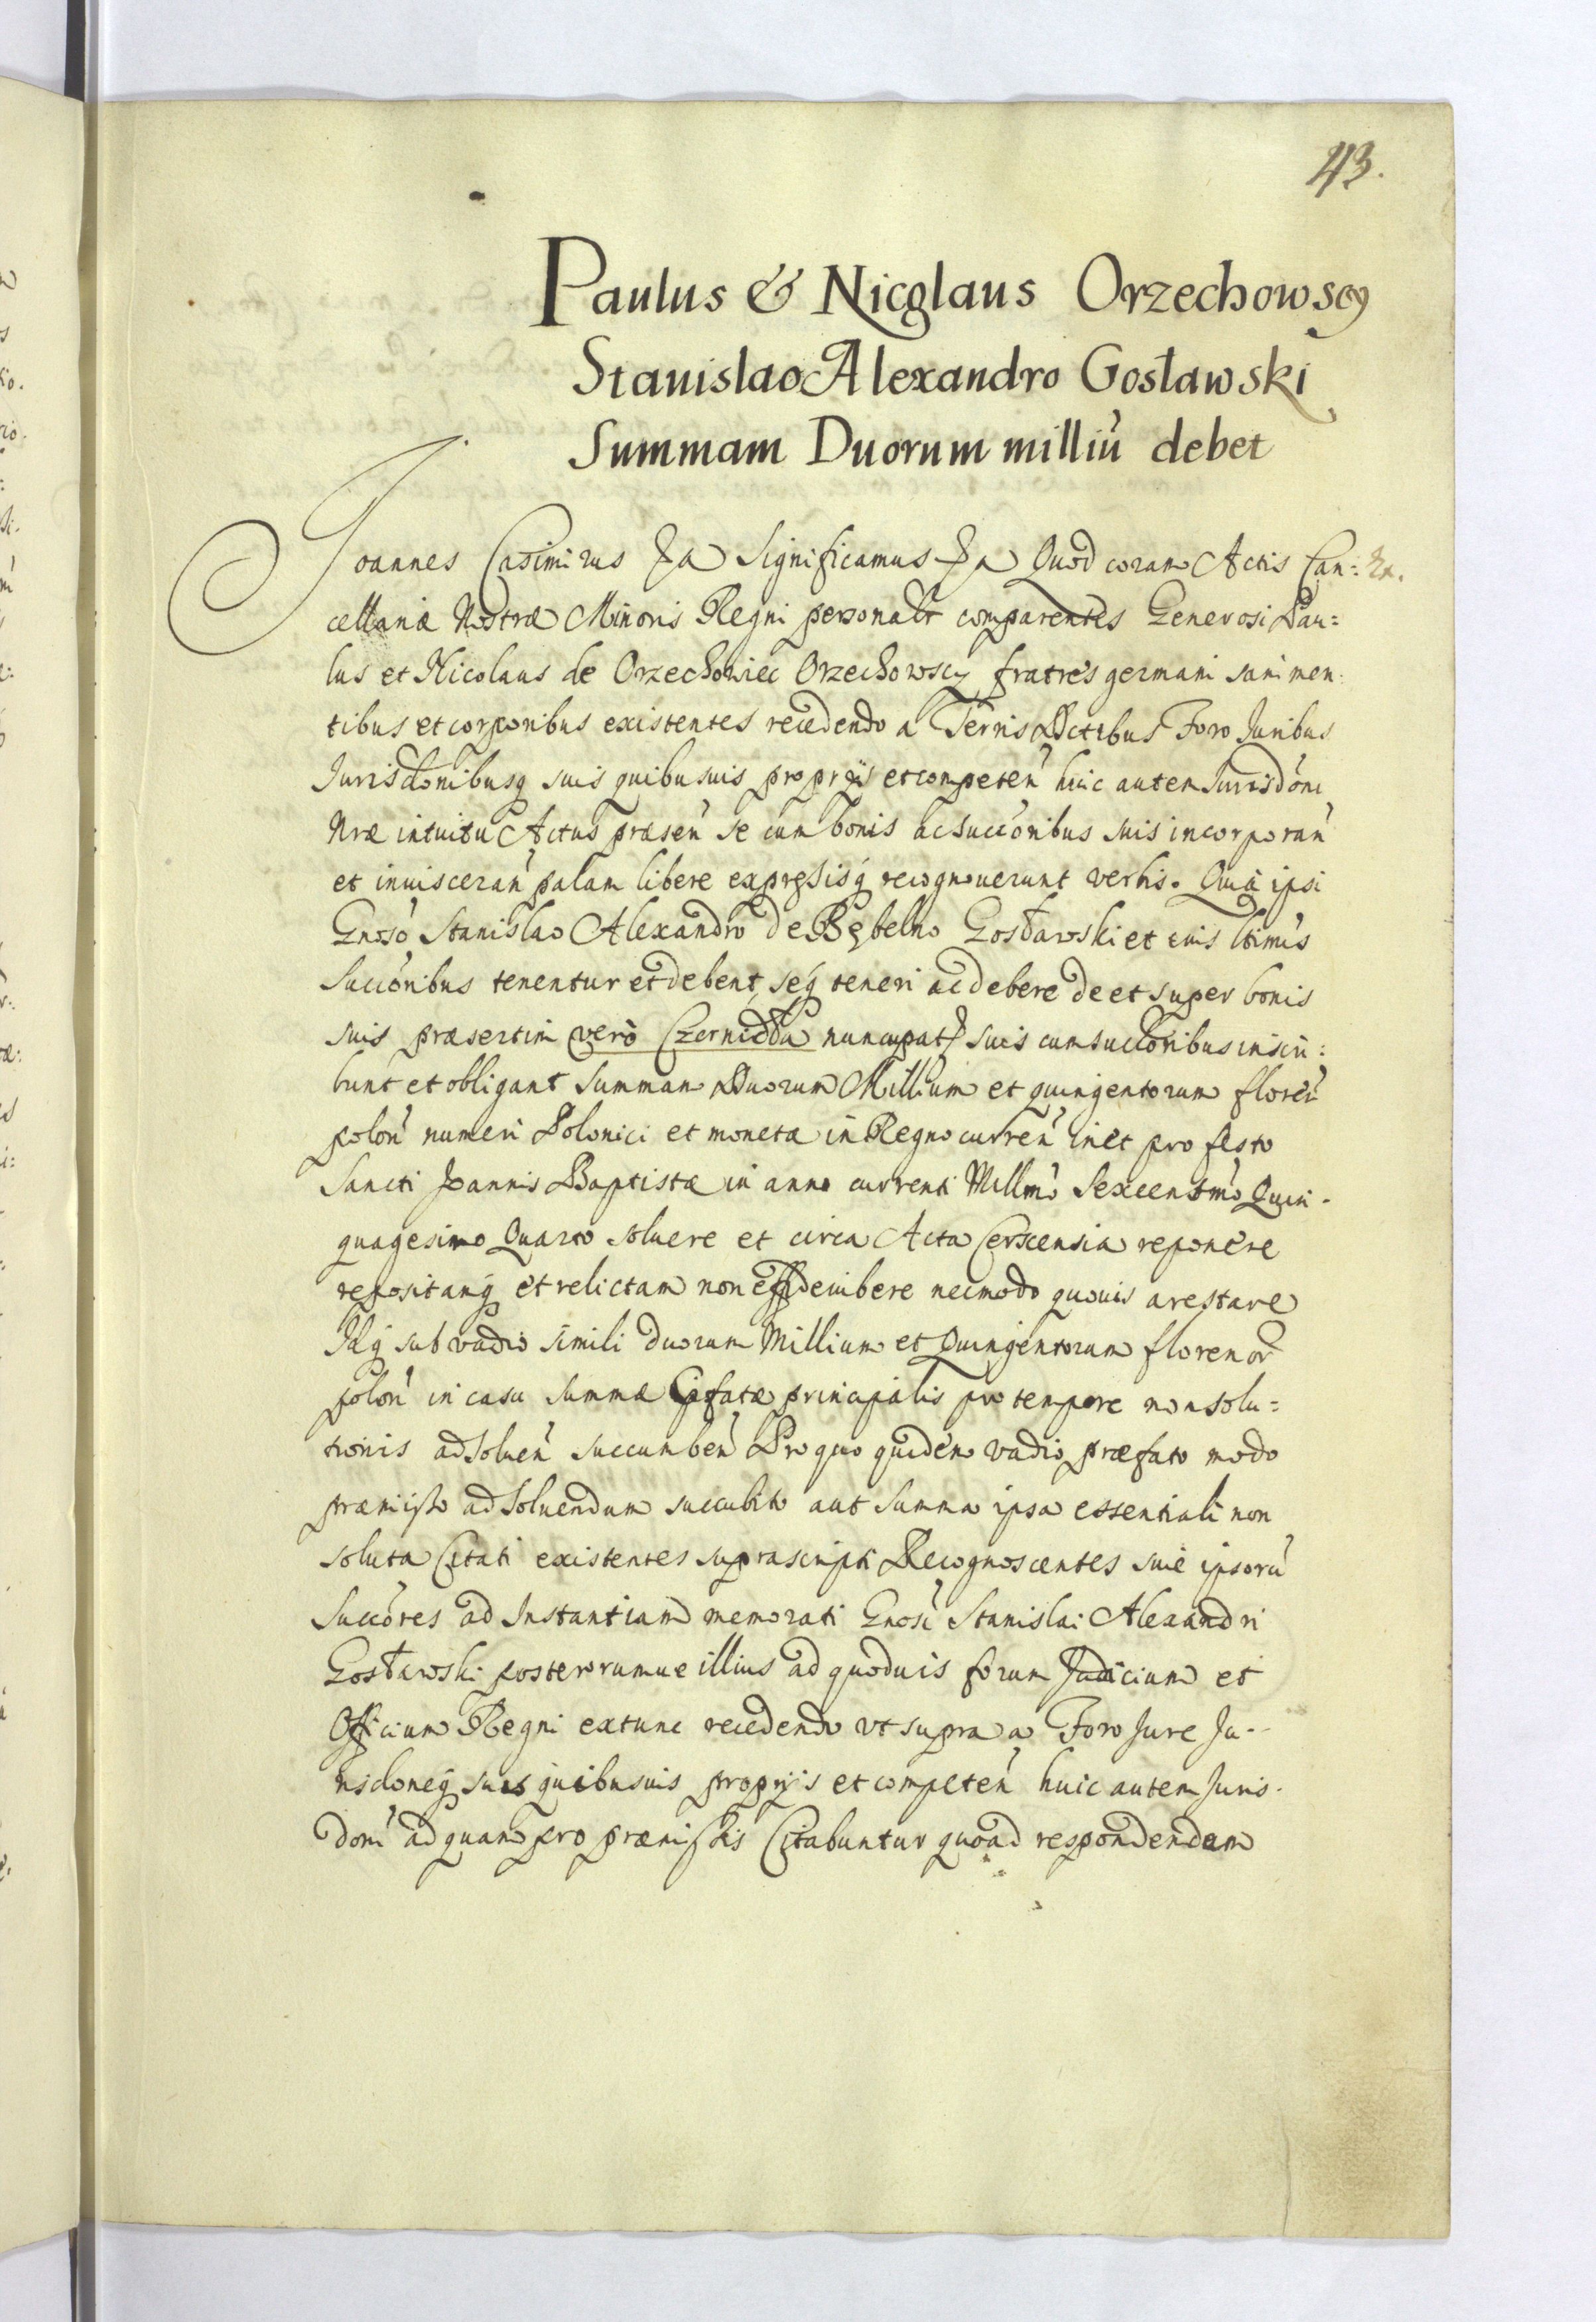 43.
Paulus & Nicolaus Orzechowscy
Stanislao Alexandro Gosławski
Summam Duorum milliū debet
Joannes Casimirus Significamus Quod coram Actis Can:
cellariæ Nostræ Minoris Regni personalr comparentes Generosi Pau=
lus et Nicolaus de Orzechowiec Orzechowscy fratres germani sani men:
tibus et corporibus existentes recedendo a Terris Foro Juribus
Jurisdonibusq suis quibusuis proprijs et competen huic autem Jurisdoni
Nræ intuitu Actus præsen se cum bonis ac succoribus suis incorporan
et inuisceran palam libere expressisq recognouerunt verbis. Quia ipsi
Gnoso Stanislao Alexandro de Bębelno Gosławski et eius ltimis
Succoribus tenentur et debent, seq teneri ac debere de et super bonis
suis præsertim vero nuncupat suis cum succoribus inscri:
bunt et obligant Summam Duorum Millium et quingentorum floren
polon numeri Polonici et monetæ in Regno curren pro festo
Sancti Joannis Baptistæ in anno currenti Millmo Sexcentmo Quin-
quagesimo Quarto soluere et circa Acta reponere
repositamq et relictam non nec modo quouis arestare
Idq sub vadio simili duorum Millium et Quingentorum florenor
polon in casu summæ principalis pro tempore non solu=
tionis ad soluen succumben Pro quo quidem vadio præfato modo
præmisso ad soluendum succubito aut summa ipsa essentiali non
soluta Citati existentes suprascripti Recognoscentes siue ipsorū
Succores ad Instantiam memorati Gnosi Stanislai Alexandri
Gosławski posterorumue illius ad quoduis forum Judicium et
Officium Regni extunc recedendo vt supra a Foro Jure Ju-
risdoneq suis quibusuis proprijs et competen huic autem Juris-
doni ad quam pro præmissis Citabuntur quoad respondendum